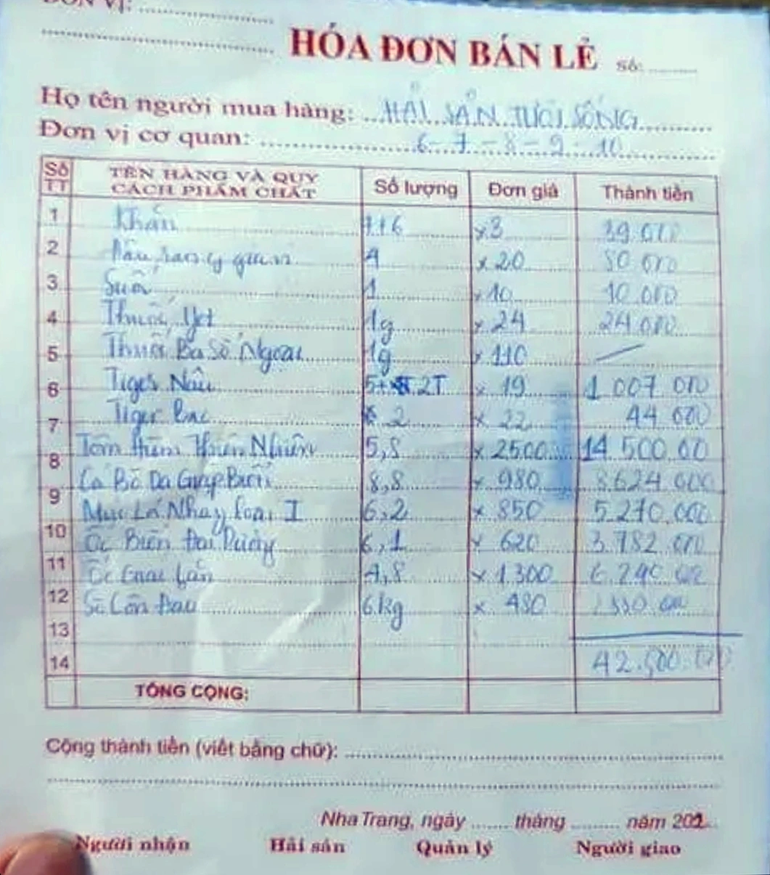 ĐƠN VỊ:
HÓA ĐƠN BÁN LẺ Số:
Họ tên người mua hàng: HẢI SẢN TƯƠI SỐNG
Đơn vị cơ quan: 6 - 7 - 8 - 9 - 10
Số TT TÊN HÀNG VÀ QUY CÁCH PHẨM CHẤT Số lượng Đơn giá Thành tiền
1 Khăn x3 39.000
2 4 x 20 80.000
3 Suối 1 x 10 10.000
4 Thuốc Jet 1g x 24 24.000
5 Thuốc Ba Số Ngoại 1g x 110
6 Tiger Nâu 5+ 2T x 19 1.007.000
7 Tiger Bạc 2 x 22 44.000
8 Tôm Hùm Thiên Nhiên 5,8 x 2500 14.500.00
9 Cá Bò Da Giáp Biển 8,8 x 980 8.624.000
10 Mực Lá Nháy loại I 6,2 x 850 5.270.000
11 Ốc Biển Đại Dương 6,1 x 620 3.782.000
12 Ốc Gai Lớn 4,8 x 1.300
13 Sò 6kg x 480
14 42.500.000
TỔNG CỘNG:
Cộng thành tiền (viết bằng chữ):
Nha Trang, ngày ....... tháng ......... năm 202
Người nhận Hải sản Quản lý Người giao